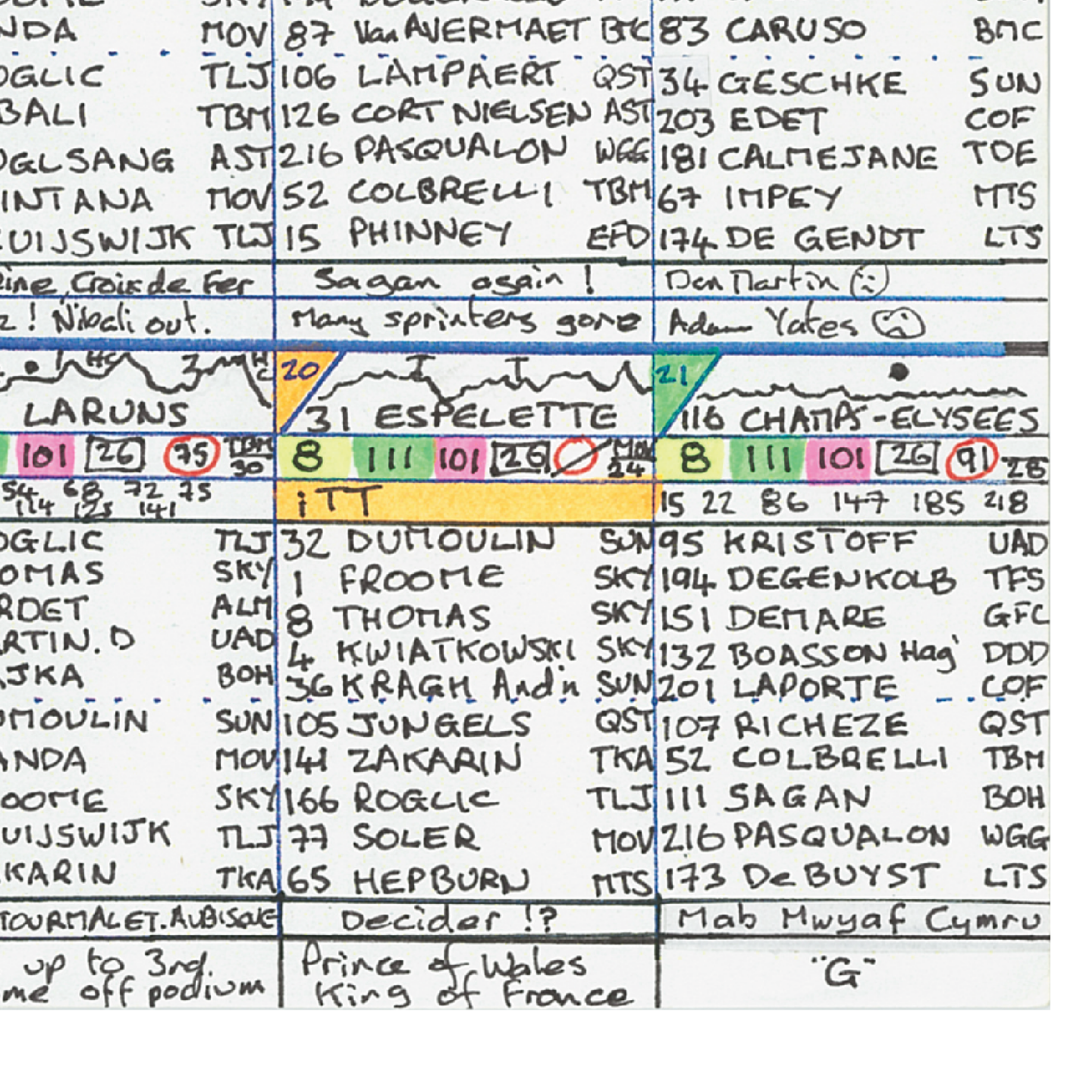 NDA MOV 87 Van AVERMAET BMC 83 CARUSO BMC
OGLIC TLJ 106 LAMPAERT QST 34 GESCHKE SUN
BALI TBM 126 CORT NIELSEN AST 203 EDET COF
OGLSANG AST 216 PASQUALON WGG 181 CALMEJANE TDE
INTANA MOV 52 COLBRELLI TBM 67 IMPEY MTS
UIJSWIJK TLJ 15 PHINNEY EFD 174 DE GENDT LTS
ine, Croix de Fer Sagan again ! Dan Martin
z ! Nibali out. Many sprinters gone Adam Yates
HC 3 HC 20 21
LARUNS 31 ESPELETTE 116 CHAMPS-ELYSEES
101 26 75 TBM 30 8 111 101 26 MOV 24 8 111 101 26 91 28
54 68 72 75 iTT 15 22 86 147 185 218
114 125 141
OGLIC TLJ 32 DUMOULIN SUN 95 KRISTOFF UAD
OMAS SKY 1 FROOME SKY 194 DEGENKOLB TFS
RDET ALM 8 THOMAS SKY 151 DEMARE GFC
RTIN. D UAD 4 KWIATKOWSKI SKY 132 BOASSON Hag' DDD
JKA BOH 36 KRAGH And'n SUN 201 LAPORTE COF
UMOULIN SUN 105 JUNGELS QST 107 RICHEZE QST
ANDA MOV 141 ZAKARIN TKA 52 COLBRELLI TBM
OOME SKY 166 ROGLIC TLJ 111 SAGAN BOH
UIJSWIJK TLJ 77 SOLER MOV 216 PASQUALON WGG
KARIN TKA 65 HEPBURN MTS 173 De BUYST LTS
TOURMALET. AUBISQUE Decider !? Mab Mwyaf Cymru
up to 3rd. Prince of Wales "G"
me off podium King of France